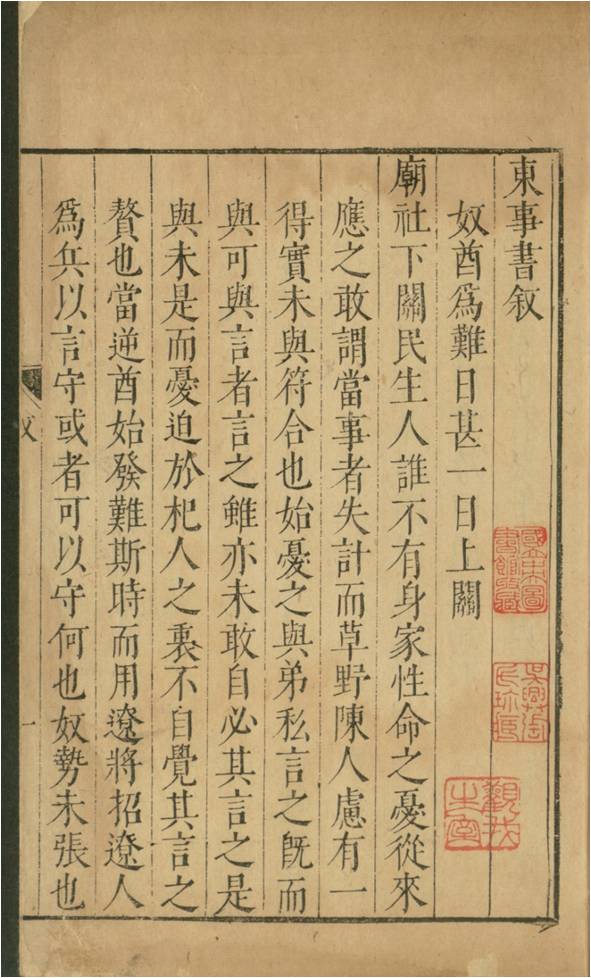 東事書叙
奴酋爲難日甚一日上關
廟社下關民生人誰不有身家性命之憂從來
應之敢謂當事者失計而草野陳人慮有一
得實未與符合也始憂之與弟私言之旣而
與可與言者言之雖亦未敢自必其言之是
與未是而憂迫於杞人之裏不自覺其言之
贅也當逆酋始發難斯時而用遼將招遼人
爲兵以言守或者可以守何也奴勢未張也
叙
一
國立中央圖書館收藏